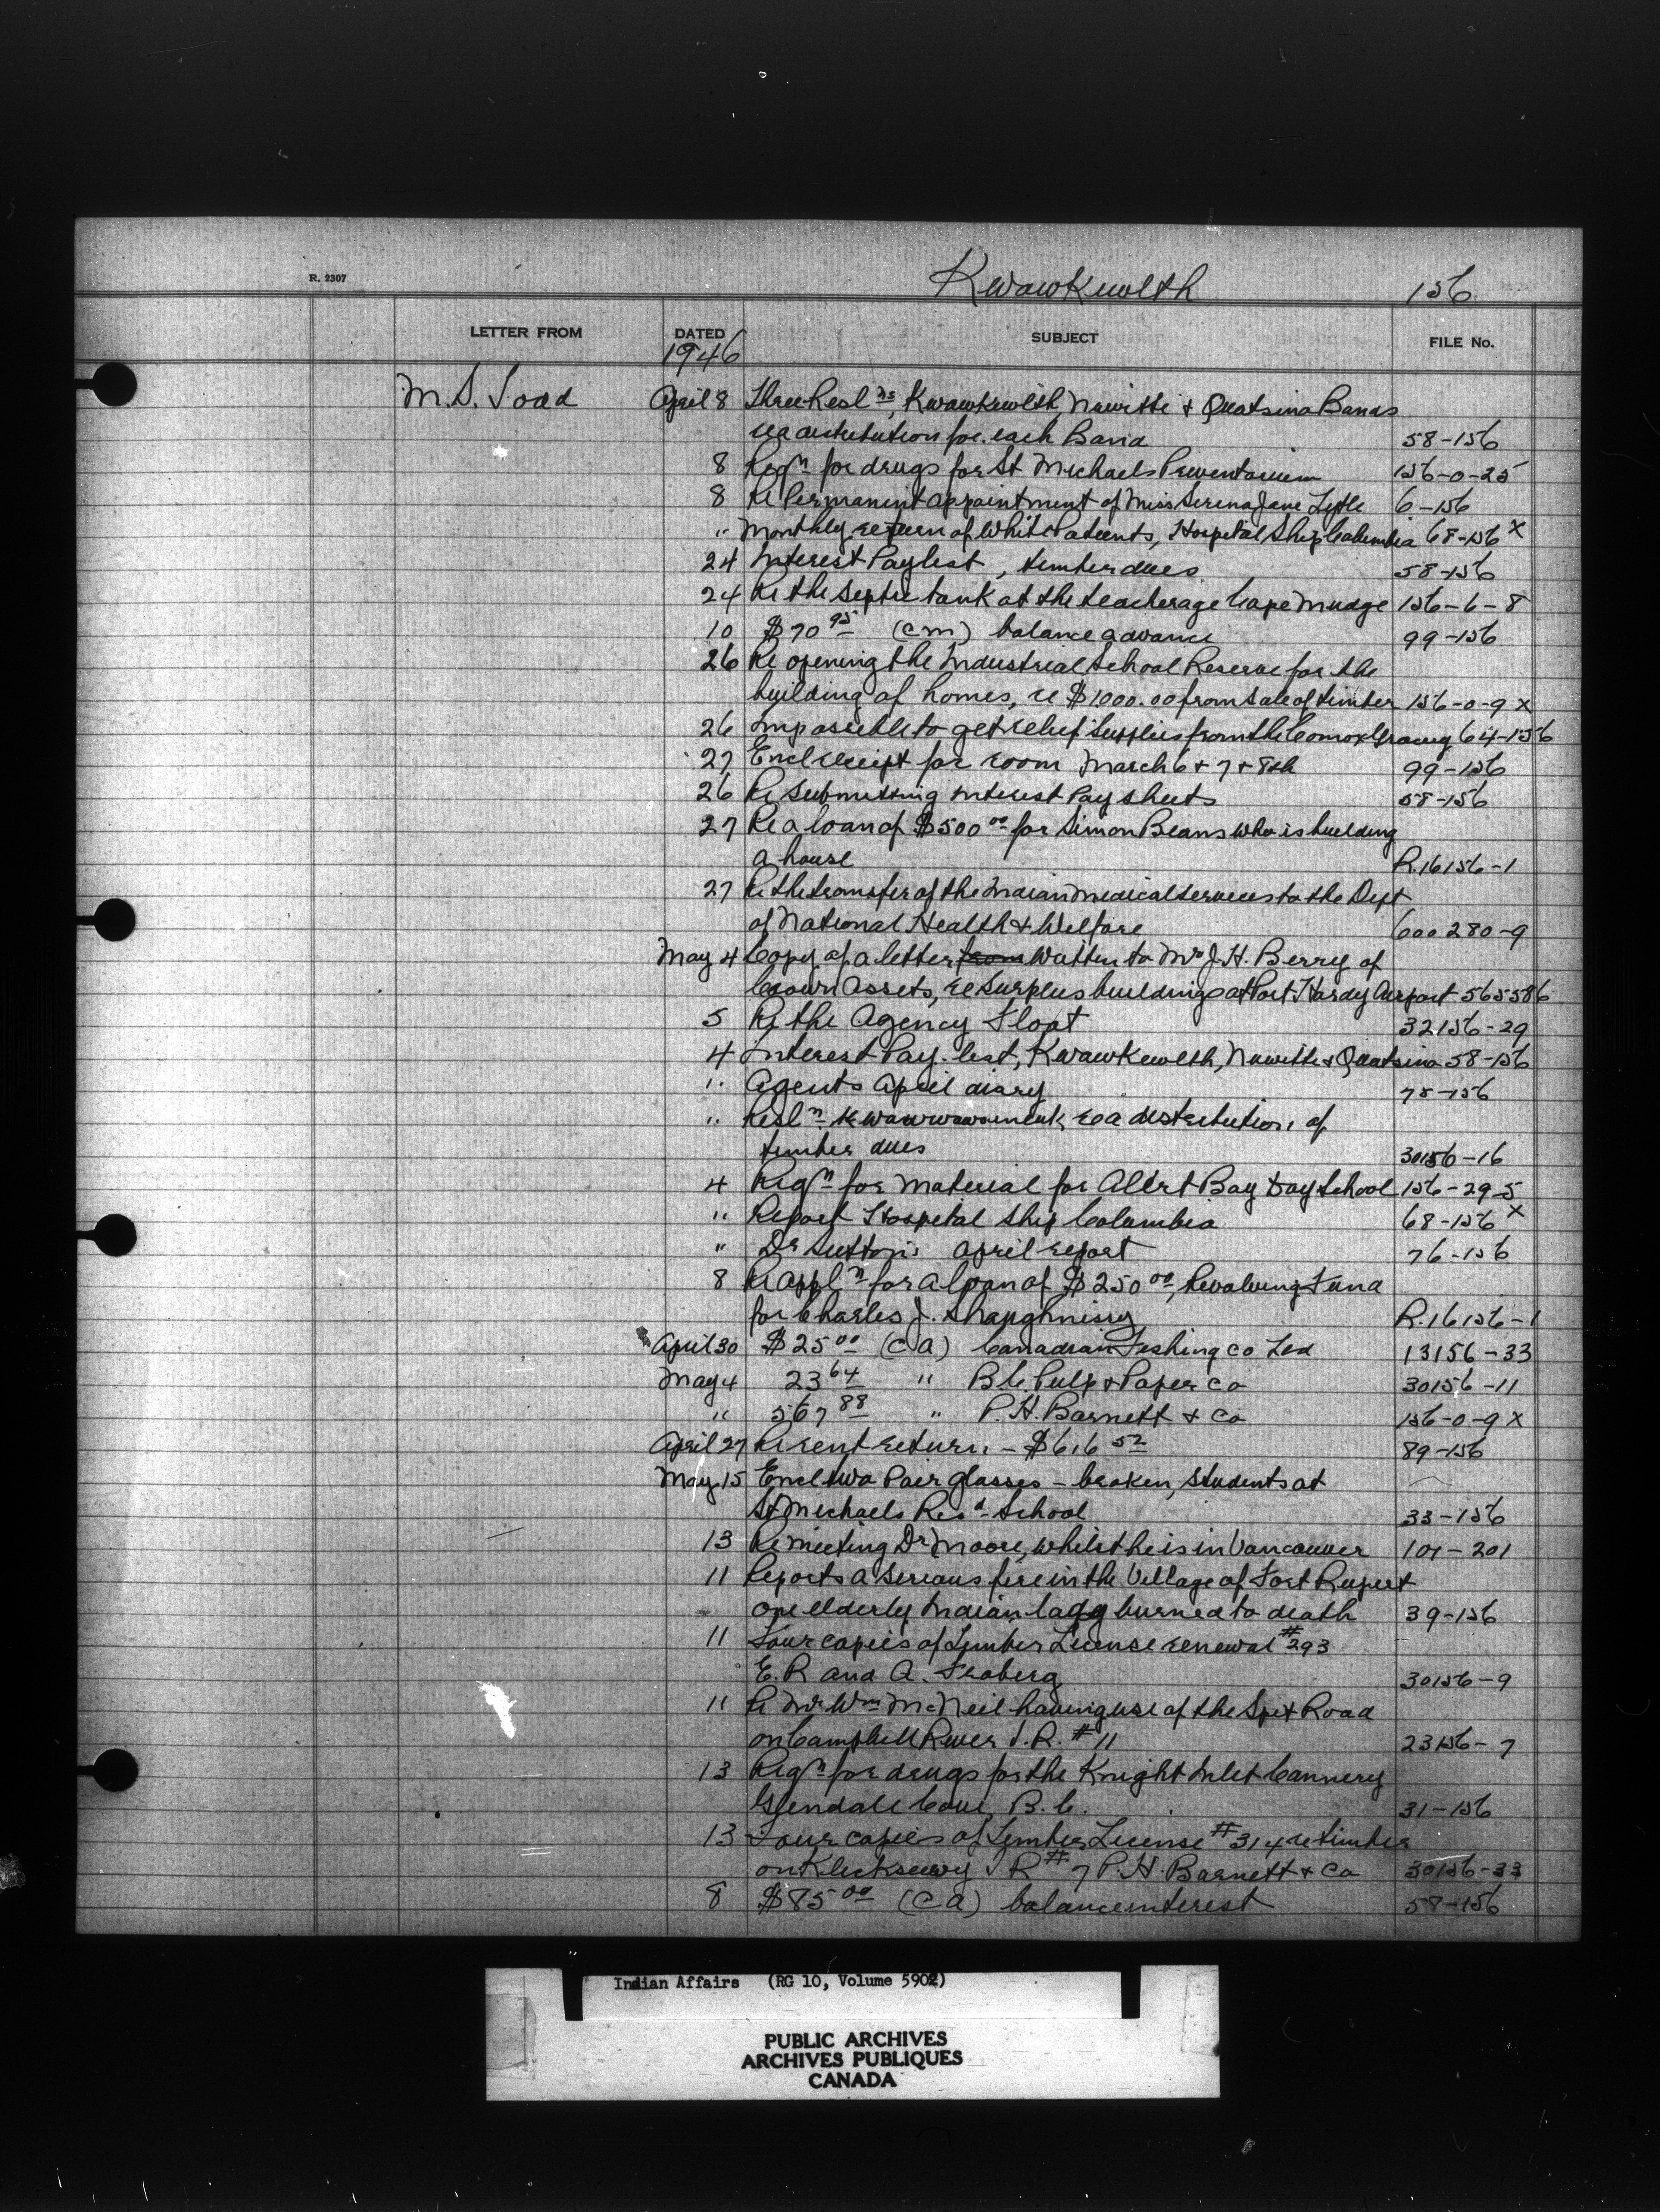 R. 2307
Kwawkewlth 156
LETTER FROM DATED SUBJECT FILE No.
1946
M. S. Todd April 8 Three Resl ns, Kwawkewlth, Nuwitti + Quatsino Bands
re a distribution for each Band 58-156
8 Reqn for drugs for St Michaels Preventorium 156-0-25
8 Re Permanent appointment of Miss Serena Jane Lytle 6-156
" Monthly return of White Patients, Hospital Ship Columbia 68-156 x
24 Interest Paylist, timber dues 58-156
24 Re the Septic tank at the teacherage Cape Mudge 156-6-8
10 $70 95 (cm) balance advance 99-156
26 Re opening the Industrial School Reserve for the
building of homes, re $1000.00 from sale of timber 156-0-9 x
26 Impossible to get relief supplies from the Comox Grocery 64-156
27 Encl receipt for room March 6 + 7 + 8th 99-156
26 Re submitting interest Pay sheets 58-156
27 Re a loan of $500 00 for Simon Beans who is building
a house R.16156-1
27 Re the transfer of the Indian medical services to the Dept
of National Health + Welfare 600 280-9
May 4 Copy of a letter from written to Mr J.H. Berry of
Crown Assets, re Surplus buildings at Port Hardy Airport 565586
5 Re the Agency Float 32156-29
4 Interest Pay-list, Kwawkewlth, Nuwitti + Quatsino 58-156
" Agents April diary 78-156
" Resln re a distribution of
timber dues 30156-16
4 Reqn for material for Alert Bay Day School 156-29-5
" Report Hospital Ship Columbia 68-156 x
" Dr Sutton's April report 76-156
8 Re appln for a loan of $250 00, Revolving Fund
for Charles J. Shaughnissy R.16156-1
April 30 $25 00 (CA) Canadian Fishing Co Ltd 13156-33
May 4 23 64 " B C Pulp + Paper Co 30156-11
" 567 88 " P. H. Barnett + Co 156-0-9 x
April 27 Re rent return - $616 52 89-156
May 15 Encl two Pair glasses - broken, students at
St Michaels Resd School 33-156
13 Re meeting Dr Moore, whilst he is in Vancouver 101-201
11 Reports a serious fire in the Village of Fort Rupert
one elderly Indian lady burned to death 39-156
11 Four copies of Timber License renewal #293
E. R and A. Froberg 30156-9
11 Re Mr Wm McNeil having use of the Spit Road
on Campbell River I.R. #11 23156-7
13 Reqn for drugs for the Knight Inlet Cannery
Glendale Cove, B.C. 31-156
13 Four copies of Timber License #314 re timber
on Klickseewy I R #7 P. H. Barnett + Co 30156-33
8 $85 00 (CA) balance interest 58-156
Indian Affairs (RG 10, Volume 5902)
PUBLIC ARCHIVES
ARCHIVES PUBLIQUES
CANADA